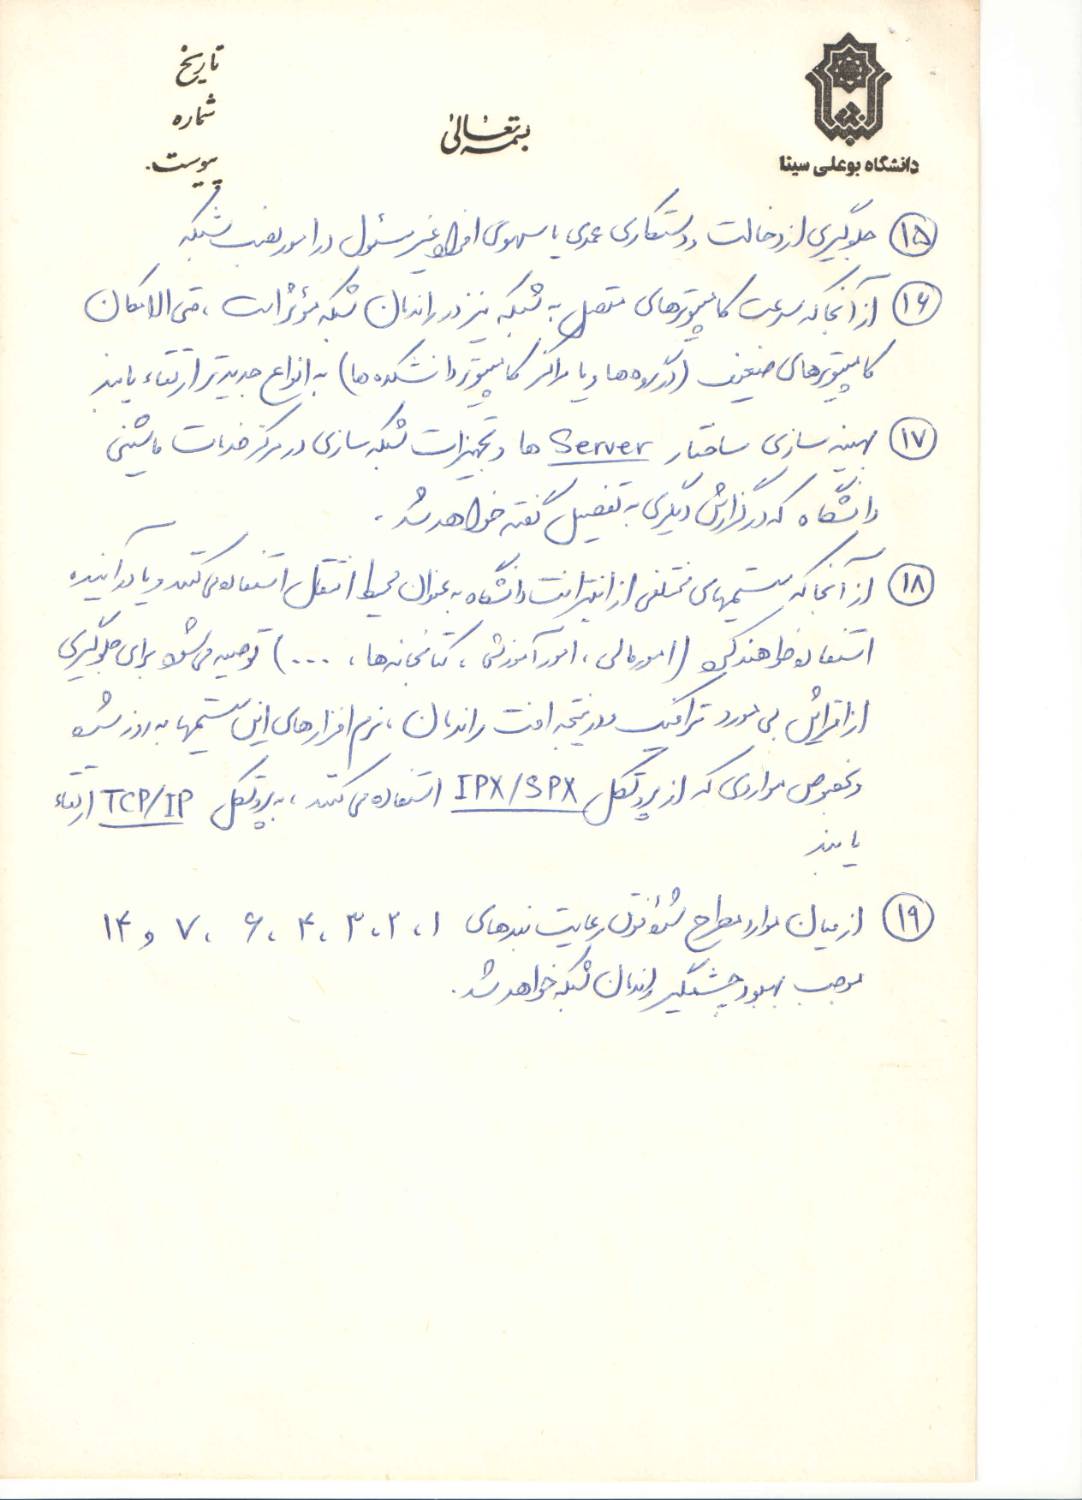 تاریخ
شماره
پیوست
بسمه‌تعالی
دانشگاه بوعلی سینا
۱۵ جلوگیری از دخالت و دستکاری عمدی یا سهوی افراد غیر مسئول در امور نصب شبکه
۱۶ از آنجا که سرعت کامپیوترهای متصل به شبکه نیز در راندمان شبکه مؤثر است ، حتی الامکان
کامپیوترهای ضعیف (در گروه‌ها و یا مراکز کامپیوتر دانشکده‌ها) به انواع جدیدتر ارتقاء یابند
۱۷ بهینه سازی ساختار Server ها و تجهیزات شبکه سازی در مرکز خدمات ماشینی
دانشگاه که در گزارش دیگری به تفصیل گفته خواهد شد .
۱۸ از آنجا که سیستمهای مختلفی از اینترانت دانشگاه به عنوان محیط انتقال استفاده می‌کنند و یا در آینده
استفاده خواهند کرد (امور مالی ، امور آموزشی ، کتابخانه‌ها ، ...) توصیه می‌شود برای جلوگیری
از افزایش بی مورد ترافیک و در نتیجه افت راندمان ، نرم افزارهای این سیستمها به روز شده
و بخصوص مواردی که از پروتکل IPX/SPX استفاده می‌کنند ، به پروتکل TCP/IP ارتقاء
یابند
۱۹ از میان موارد مطرح شده فوق رعایت بندهای ۱ ، ۲ ، ۳ ، ۴ ، ۶ ، ۷ و ۱۴
موجب بهبود چشمگیر راندمان شبکه خواهد شد .